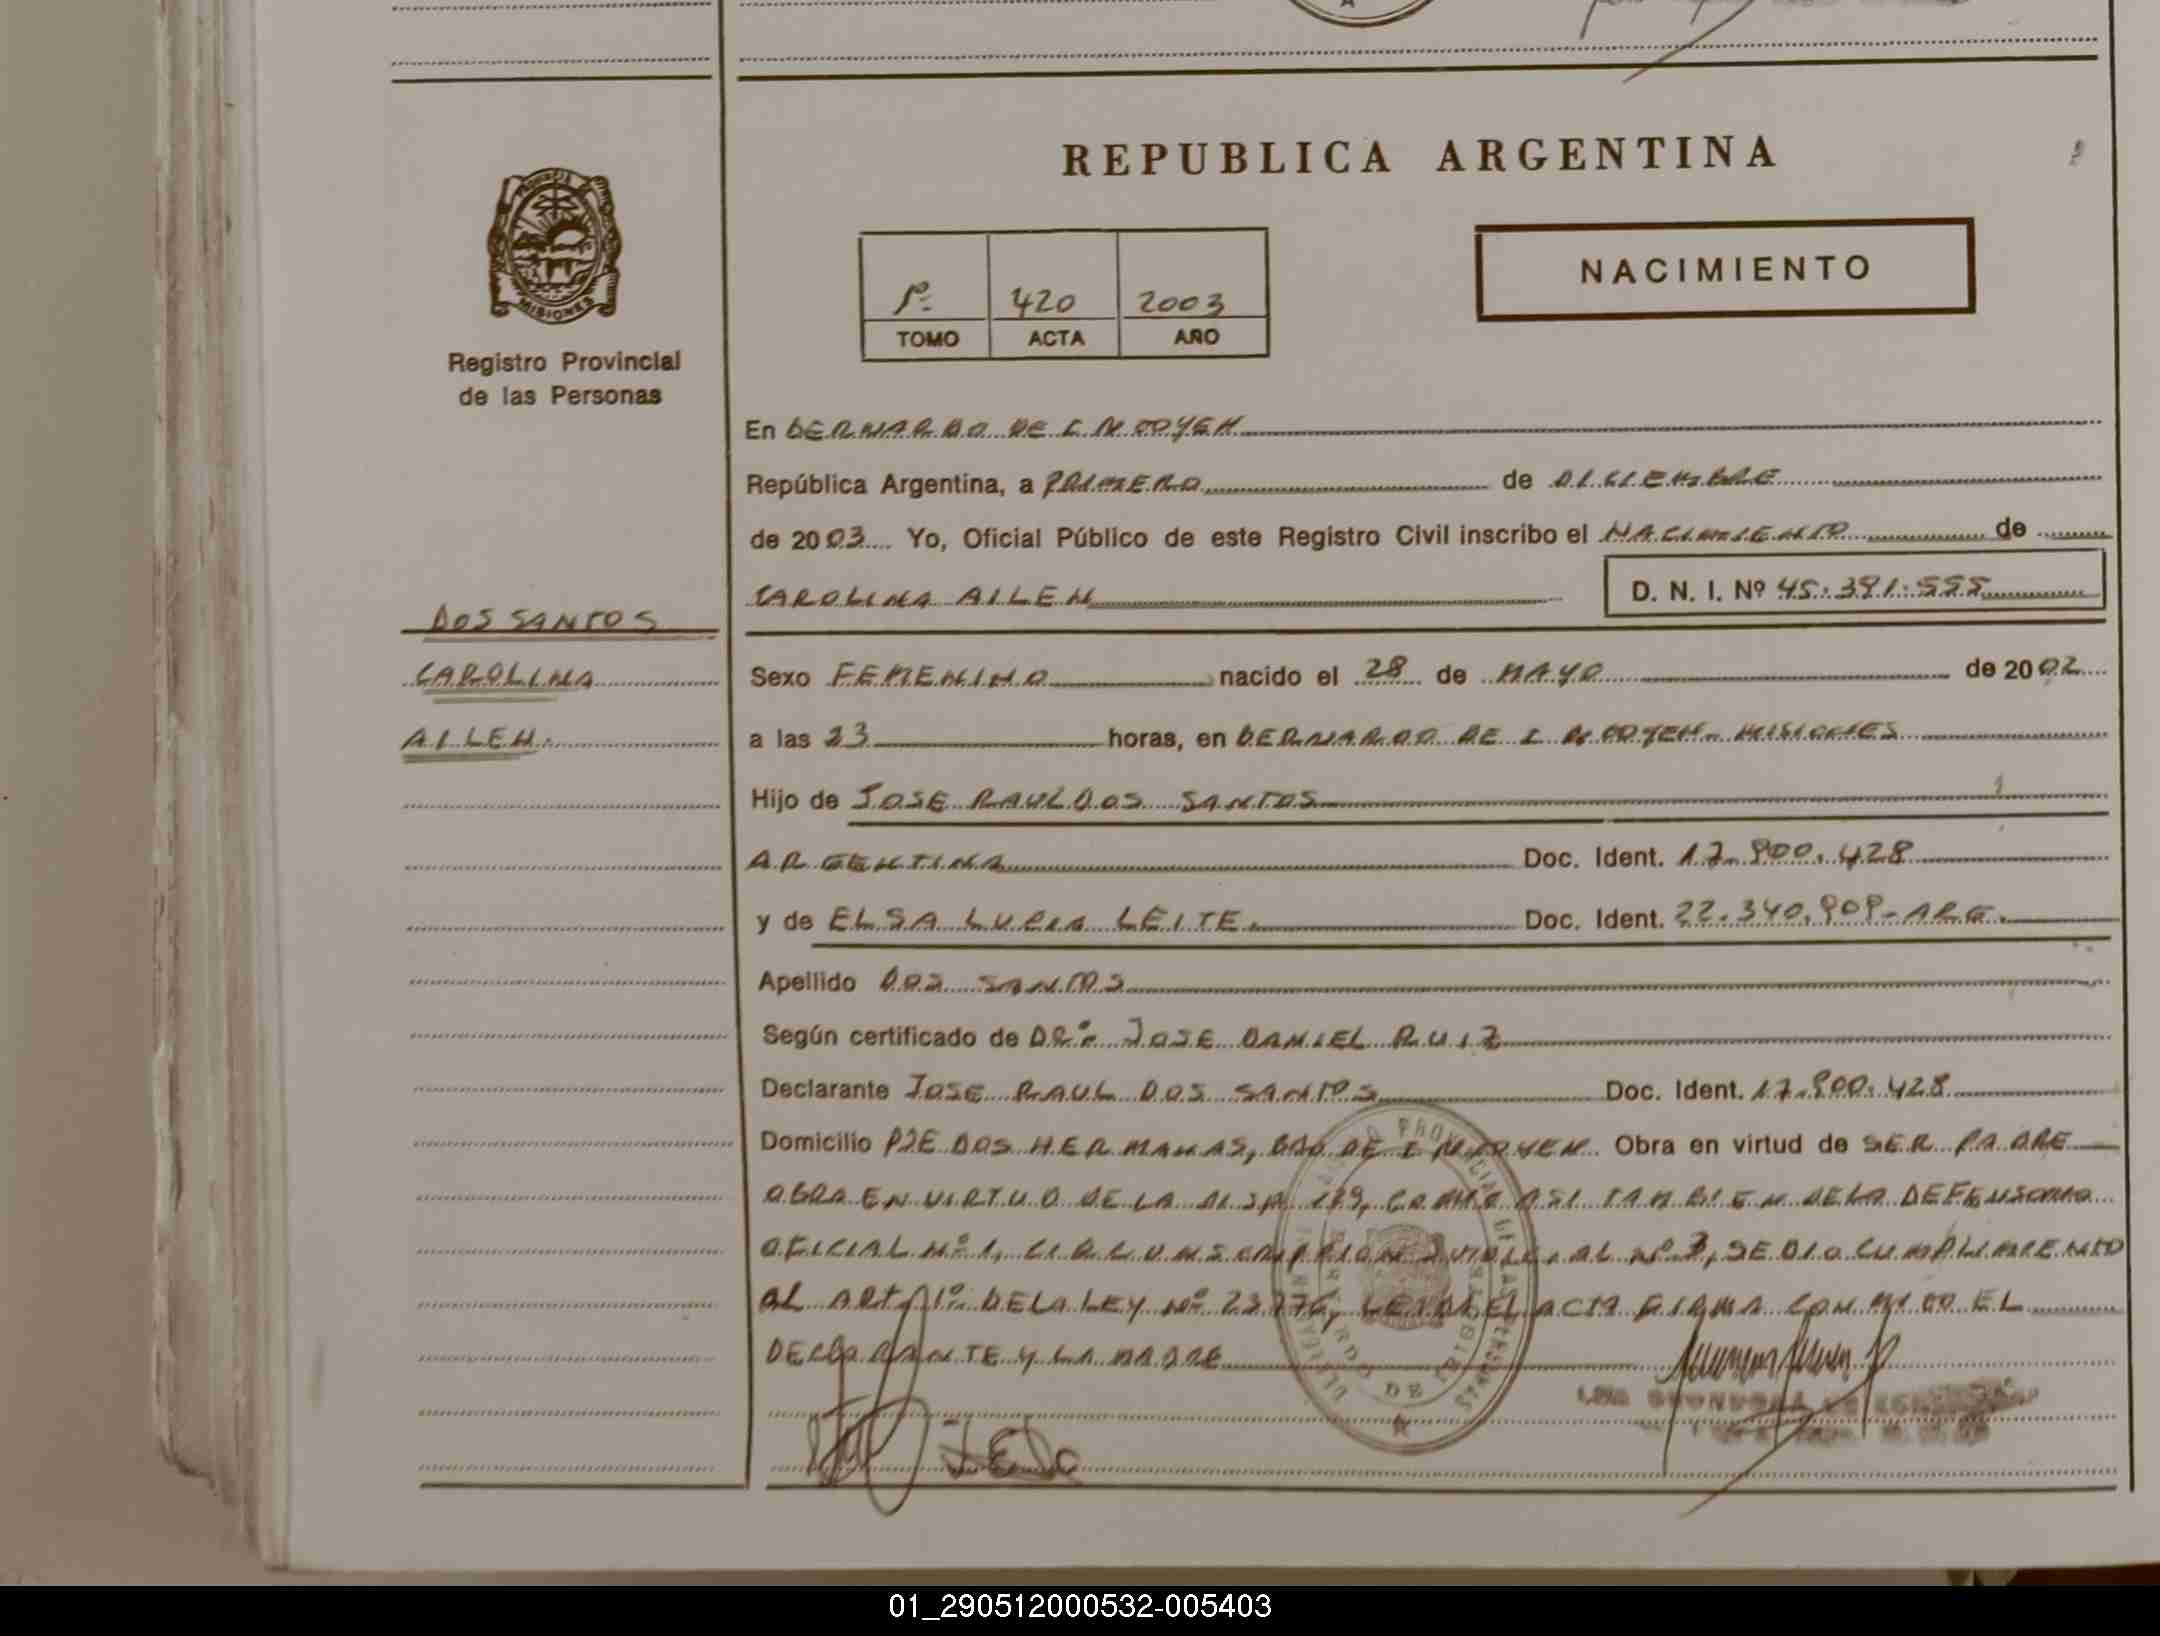 REPUBLICA ARGENTINA
NACIMIENTO
1º 420 2003
TOMO ACTA AÑO
MISIONES
Registro Provincial
de las Personas
DOS SANTOS
CAROLINA
AILEN.
En BERNARDO DE IRIGOYEN
República Argentina, a PRIMERO de DICIEMBRE
de 2003 Yo, Oficial Público de este Registro Civil inscribo el NACIMIENTO de
CAROLINA AILEN D. N. I. Nº 45.391.555
Sexo FEMENINO nacido el 28 de MAYO de 2002
a las 23 horas, en BERNARDO DE IRIGOYEN - MISIONES
Hijo de JOSE RAUL DOS SANTOS
ARGENTINA Doc. Ident. 17.900.428
y de ELSA LUCIA LEITE. Doc. Ident. 22.340.909-ARG.
Apellido DOS SANTOS
Según certificado de DR. JOSE DANIEL RUIZ
Declarante JOSE RAUL DOS SANTOS Doc. Ident. 17.900.428
Domicilio PJE DOS HERMANAS, BDO DE IRIGOYEN. Obra en virtud de SER PADRE
OBRA EN VIRTUD DE LA DISP. 179, COMO ASI TAMBIEN DE LA DEFENSORIA
OFICIAL Nº 1, CIRCUNSCRIPCION JUDICIAL Nº 3, SE DIO CUMPLIMIENTO
AL ART. 1º DE LA LEY Nº 23.776, LEIDA EL ACTA FIRMA CONMIGO EL
DECLARANTE Y LA MADRE
01_290512000532-005403